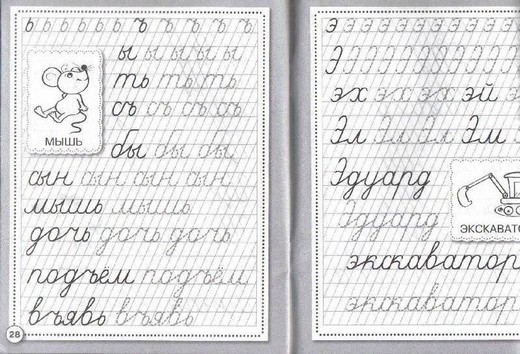 ь ь ь ь ь ь ь ъ ъ ъ ъ ъ ъ ъ
ы ы ы ы ы ы
ть ть ть
съ съ съ съ
МЫШЬ
бы бы бы
сын сын сын сын
мышь мышь
дочь дочь дочь
подъём подъём
въявь въявь
28
э э э э э э э э э э э
Э Э Э Э Э Э Э Э Э Э
эх эх эх эй эй
Эл Эл Эл Эм
Эдуард
Эдуард
ЭКСКАВАТО
экскаватор
экскаватор